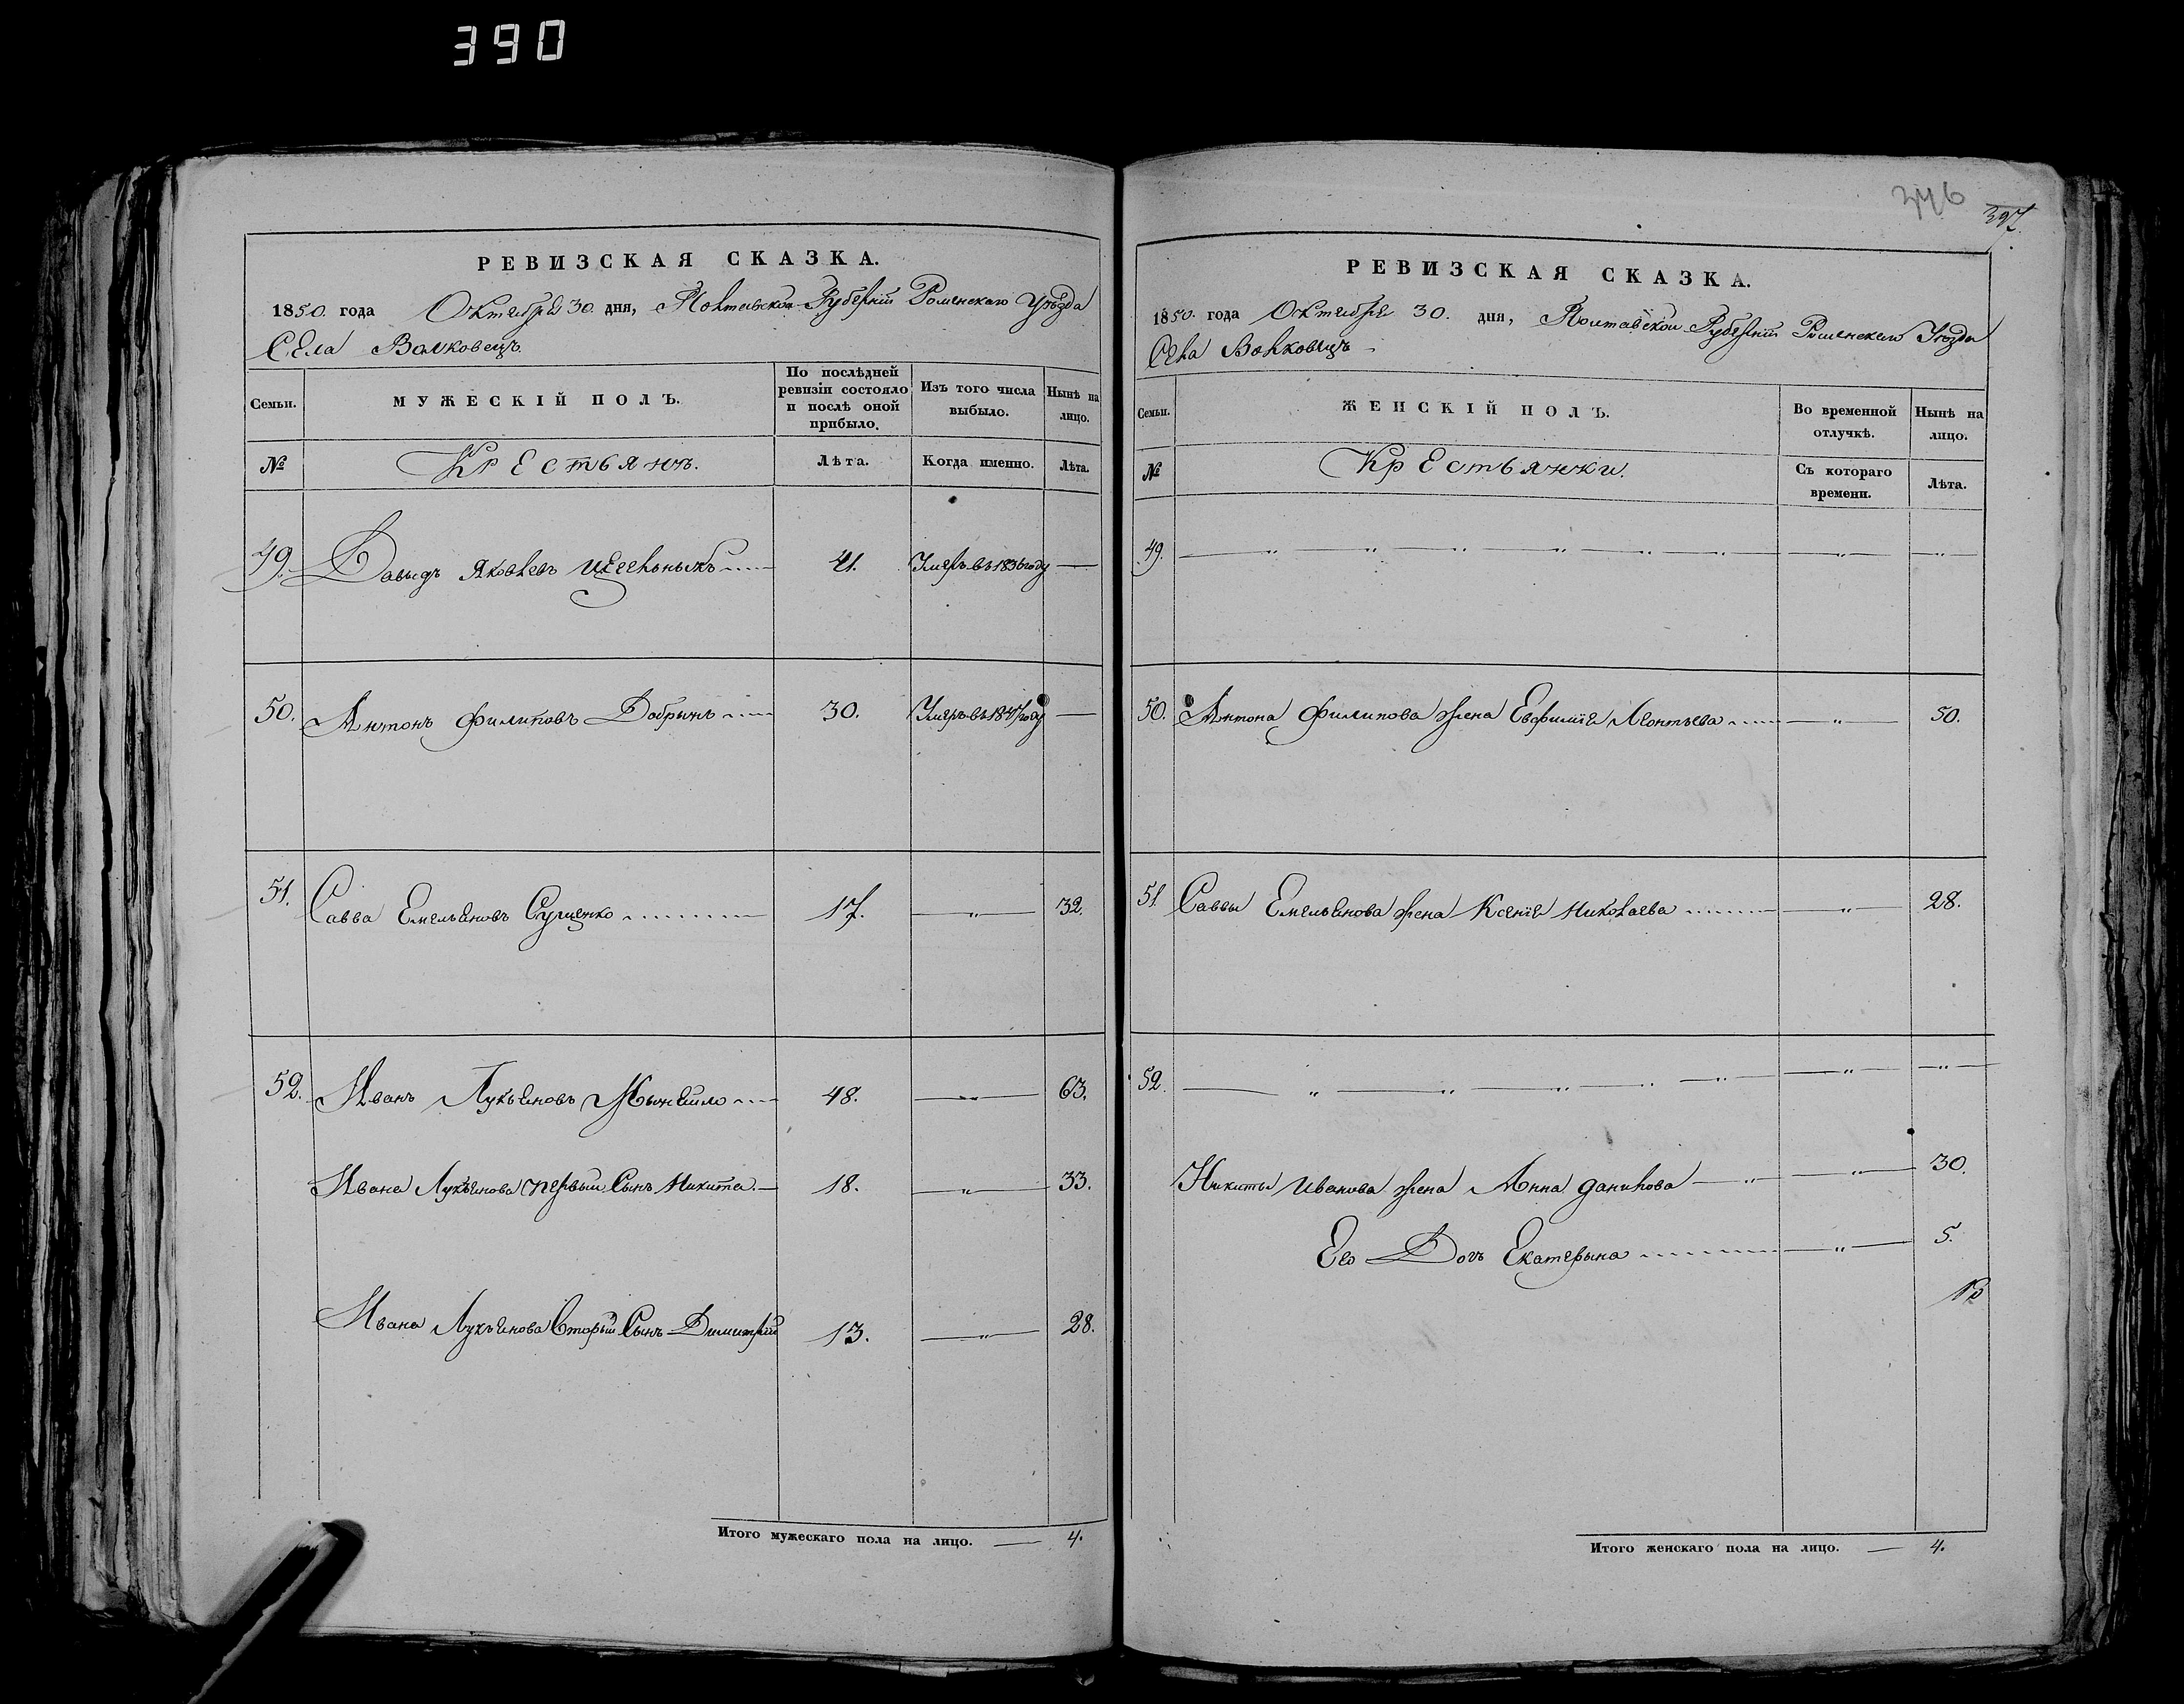 390
РЕВИЗСКАЯ СКАЗКА.
1850. года Октября 30. дня, Полтавской Губерніи Роменскаго Уѣзда
Села Волковецъ.
Семьи.
МУЖЕСКІЙ ПОЛЪ.
По послѣдней ревизіи состояло и послѣ оной прибыло.
Изъ того числа выбыло.
Нынѣ на лицо.
№
Крестьянъ.
Лѣта.
Когда именно.
Лѣта.
49. Давидъ Яковлевъ 41. Умеръ въ 1836 году
50. Антонъ Филиповъ Добрынь 30. Умеръ въ году
51. Савва Емельяновъ Сущенко 17. 32.
52. Иванъ Лукьяновъ 48. 63.
Ивана Лукьянова первый Сынъ Никита 18. 33.
Ивана Лукьянова вторый Сынъ Димитрій 13. 28.
Итого мужескаго пола на лицо. 4.
346
397.
РЕВИЗСКАЯ СКАЗКА.
1850. года Октября 30. дня, Полтавской Губерніи Роменскаго Уѣзда
Села Волковецъ
Семьи.
ЖЕНСКІЙ ПОЛЪ.
Во временной отлучкѣ.
Нынѣ на лицо.
№
Крестьянки.
Съ котораго времени.
Лѣта.
49.
50. Антона Филипова жена Евфимія Леонтьева 50.
51. Саввы Емельянова жена Ксенія Николаева 28.
52.
Никиты Иванова жена Анна Данилова 30.
Его Дочь Екатерына 5.
Итого женскаго пола на лицо. 4.